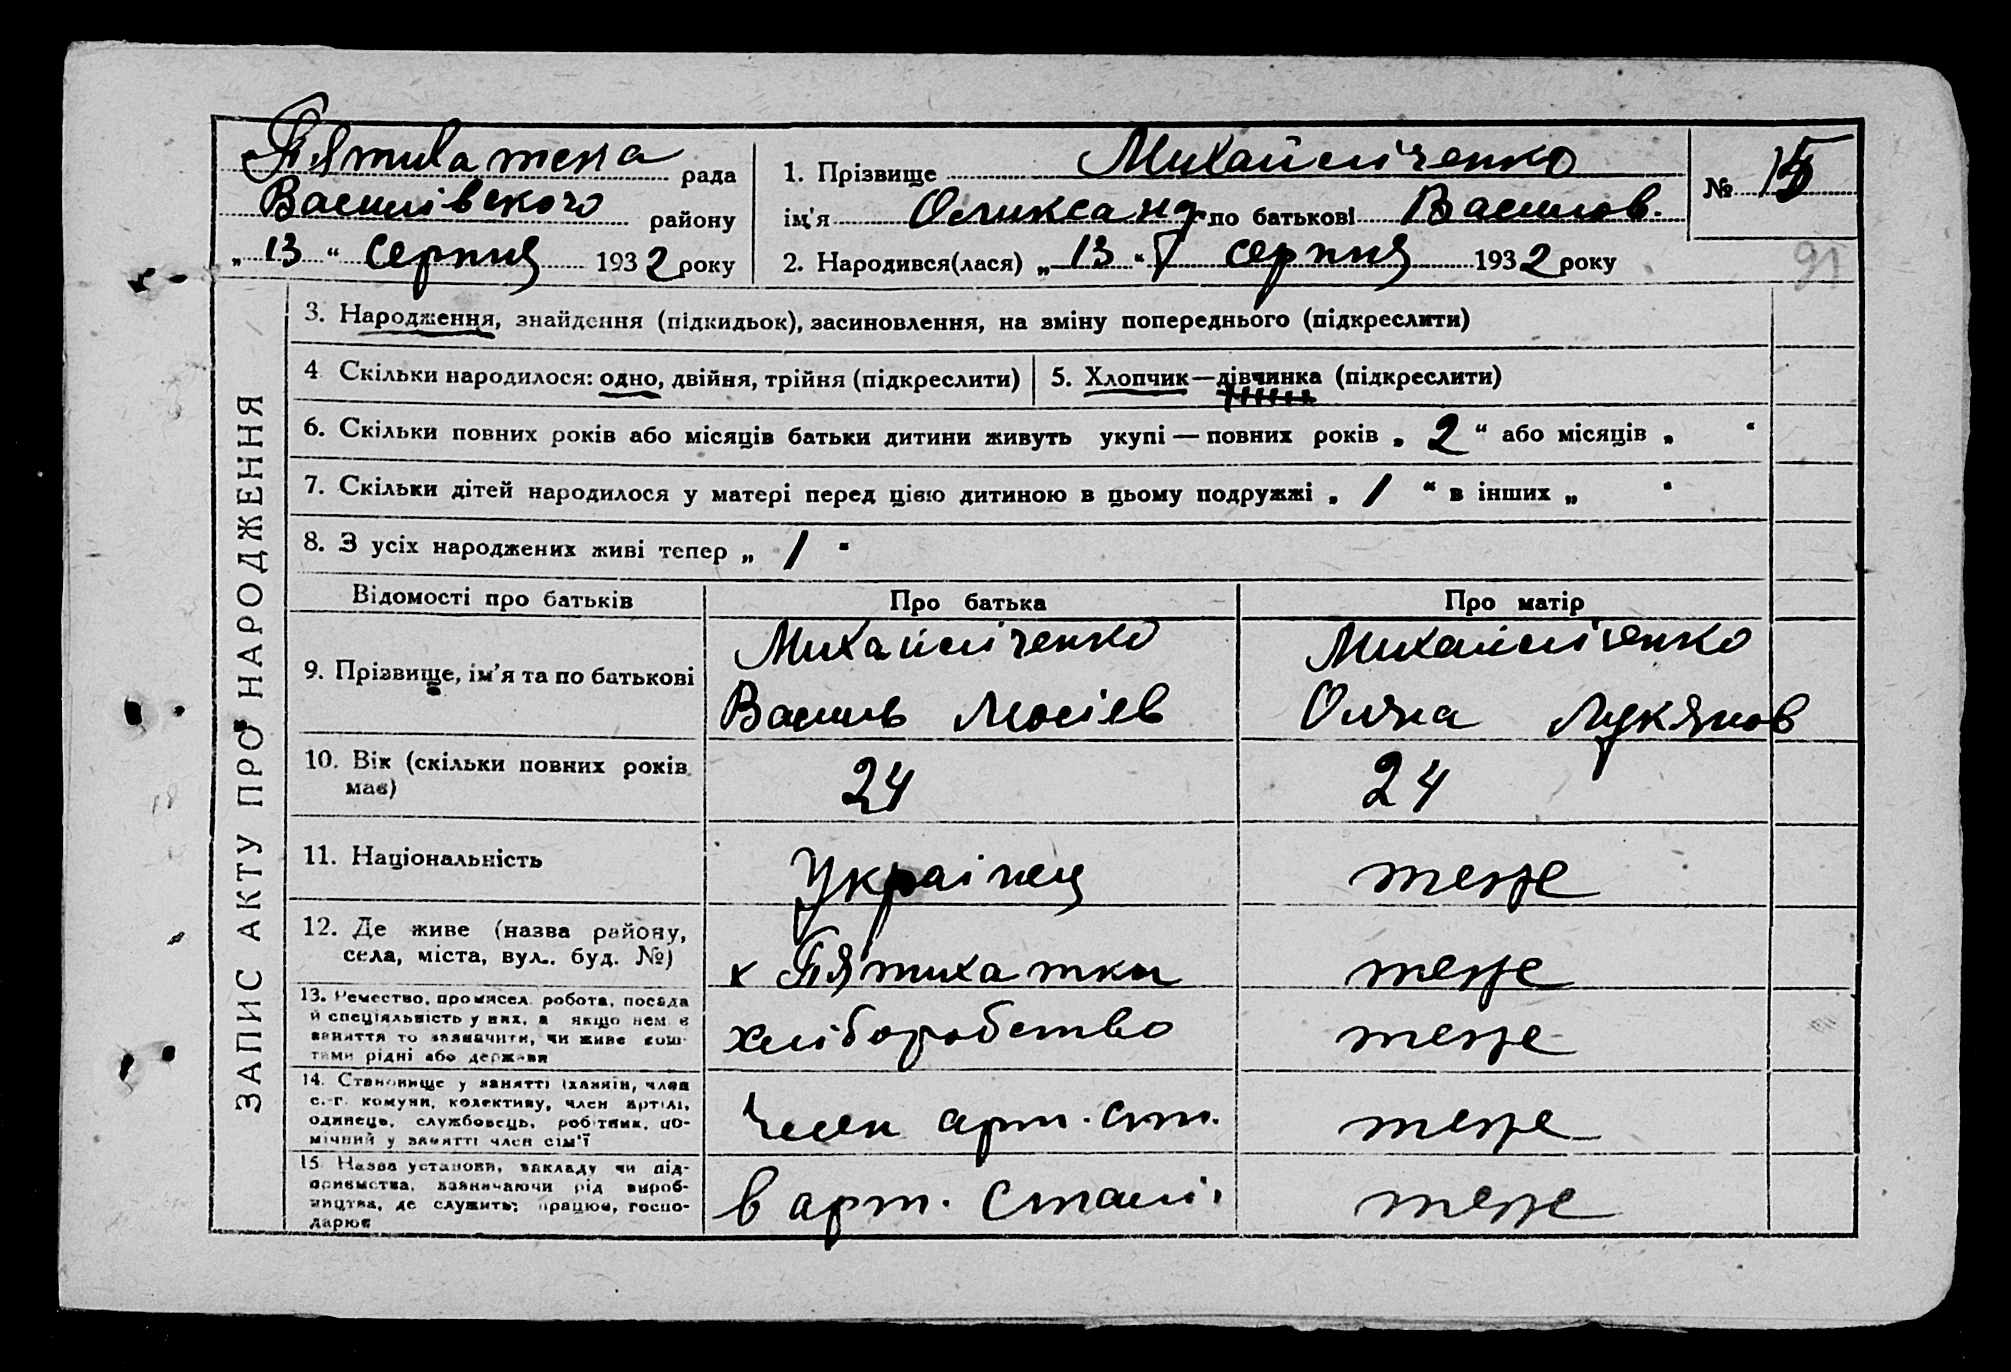 Пятихатська рада
Василівского району
„13“ серпня 1932 року
1. Прізвище Михайліченко
ім'я Оликсанд. по батькові Василов.
2. Народився(лася) „13“ серпня 1932 року
№ 15
91
ЗАПИС АКТУ ПРО НАРОДЖЕННЯ
3. Народження, знайдення (підкидьок), засиновлення, на зміну попереднього (підкреслити)
4. Скільки народилося: одно, двійня, трійня (підкреслити)
5. Хлопчик—дівчинка (підкреслити)
6. Скільки повних років або місяців батьки дитини живуть укупі — повних років „2“ або місяців „ “
7. Скільки дітей народилося у матері перед цією дитиною в цьому подружжі „1“ в інших „ “
8. З усіх народжених живі тепер „1“
Відомості про батьків
Про батька
Про матір
9. Прізвище, ім'я та по батькові
Михайліченко
Василь Мосіев
Михайліченко
Оляна Лукянов
10. Вік (скільки повних років
має)
24
24
11. Національність
Украінец
теже
12. Де живе (назва району,
села, міста, вул.. буд. №)
х Пятихатки
теже
13. Ремество, промисел, робота, посада
й спеціяльність у них, а якщо нема
заняття то зазначити, чи живе кош-
тами рідні або держави
хліборобство
теже
14. Становище у занятті (хазяїн, член
с.-г. комуни, колективу, член артілі,
одинець, службовець, робітник, по-
мічний у занятті член сім'ї
Член арт. ст.
теже
15. Назва установи, закладу чи під-
приємства, зазначаючи рід вироб-
ництва, де служить, працює, госпо-
дарює
в арт. Сталі.
теже